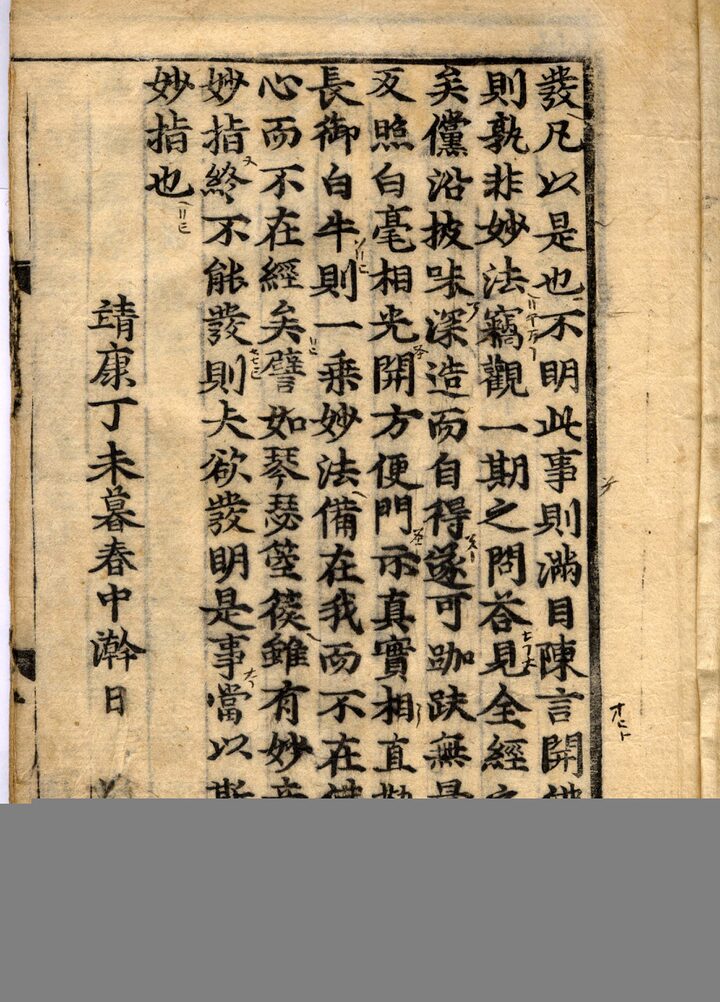 發凡以是也不明此事則滿目陳言開
則孰非妙法竊觀一期之問荅見全經
矣儻沿披味深造而自得遂可跏趺無
反照白毫相光開方便門示真實相直
長御白牛則一乗妙法備在我而不在
心而不在經矣譬如琴瑟箜篌雖有妙音
妙指終不能發則夫欲發明是事當以斯
妙指也
靖康丁未暮春中澣日